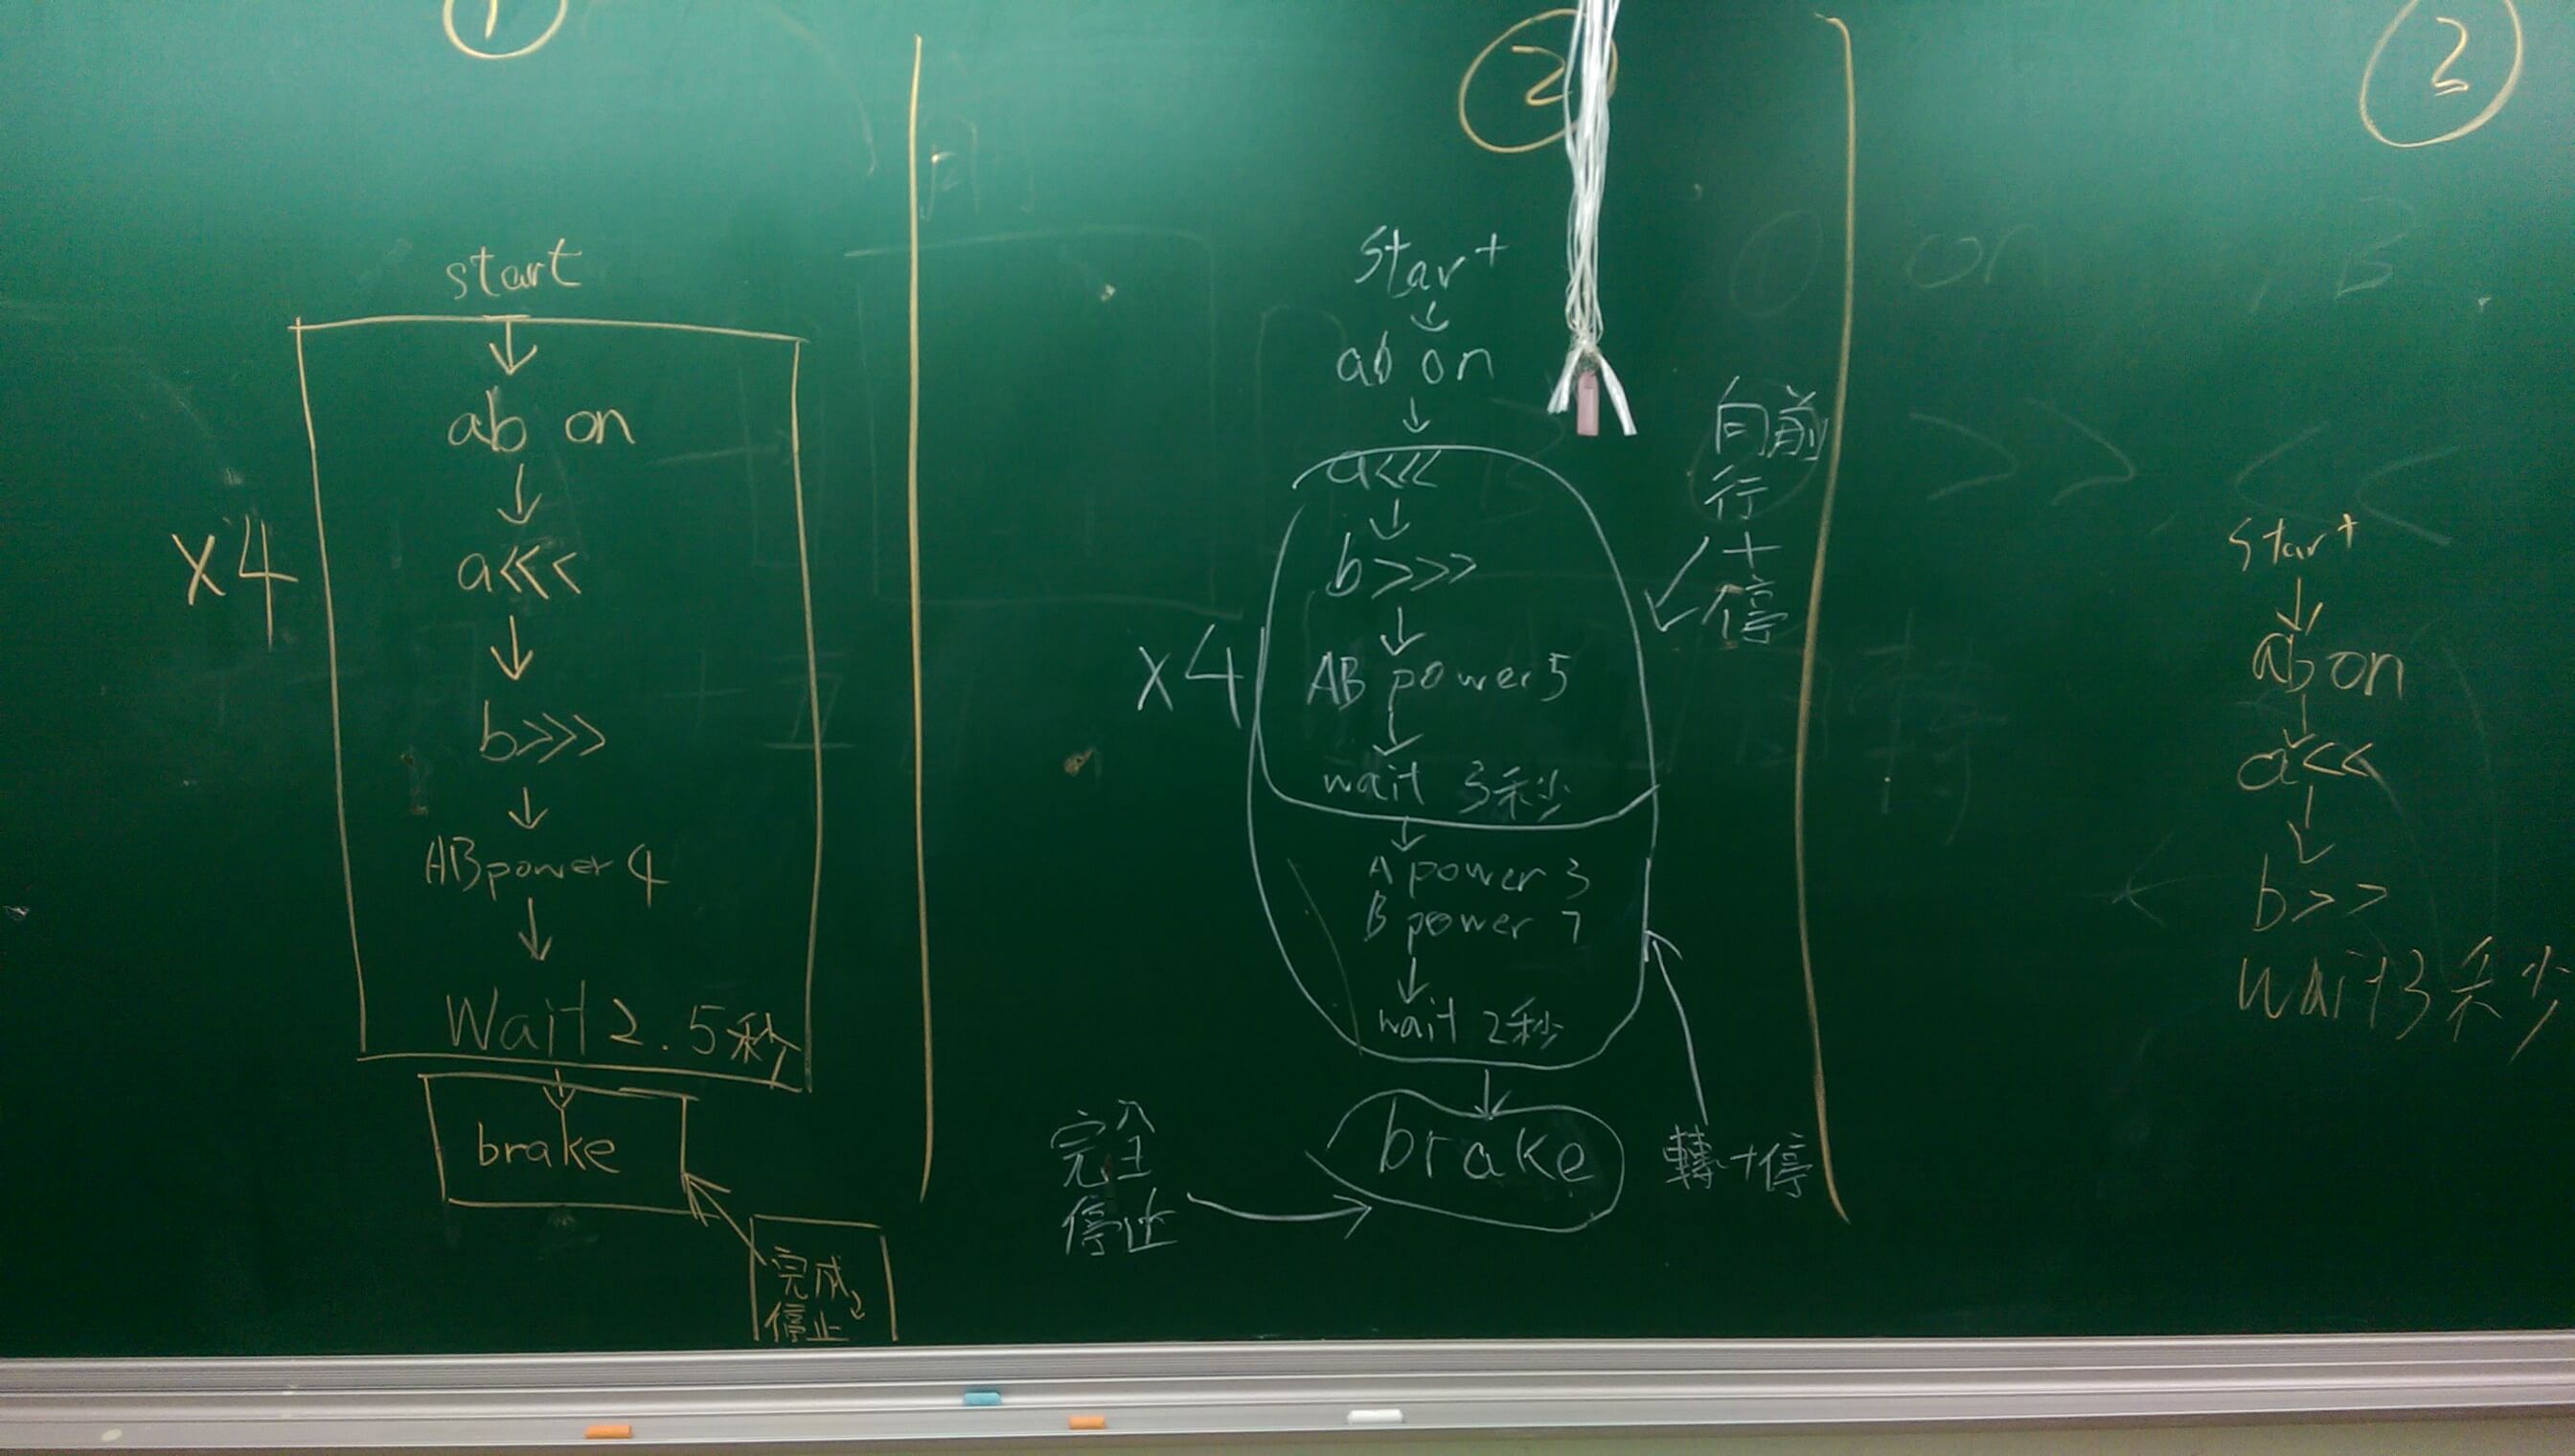 ①
start
↓
ab on
↓
a<<<
↓
b>>>
↓
ABpower 4
↓
Wait 2.5秒
x4
brake
完成
停止
②
start
↓
ab on
↓
a<<<
↓
b>>>
↓
AB power 5
↓
wait 3秒
↓
A power 3
B power 7
↓
wait 2秒
x4
↓
brake
向前
行
+
停
轉+停
完全
停止
3
start
↓
ab on
↓
a<<
↓
b>>
wait 3秒